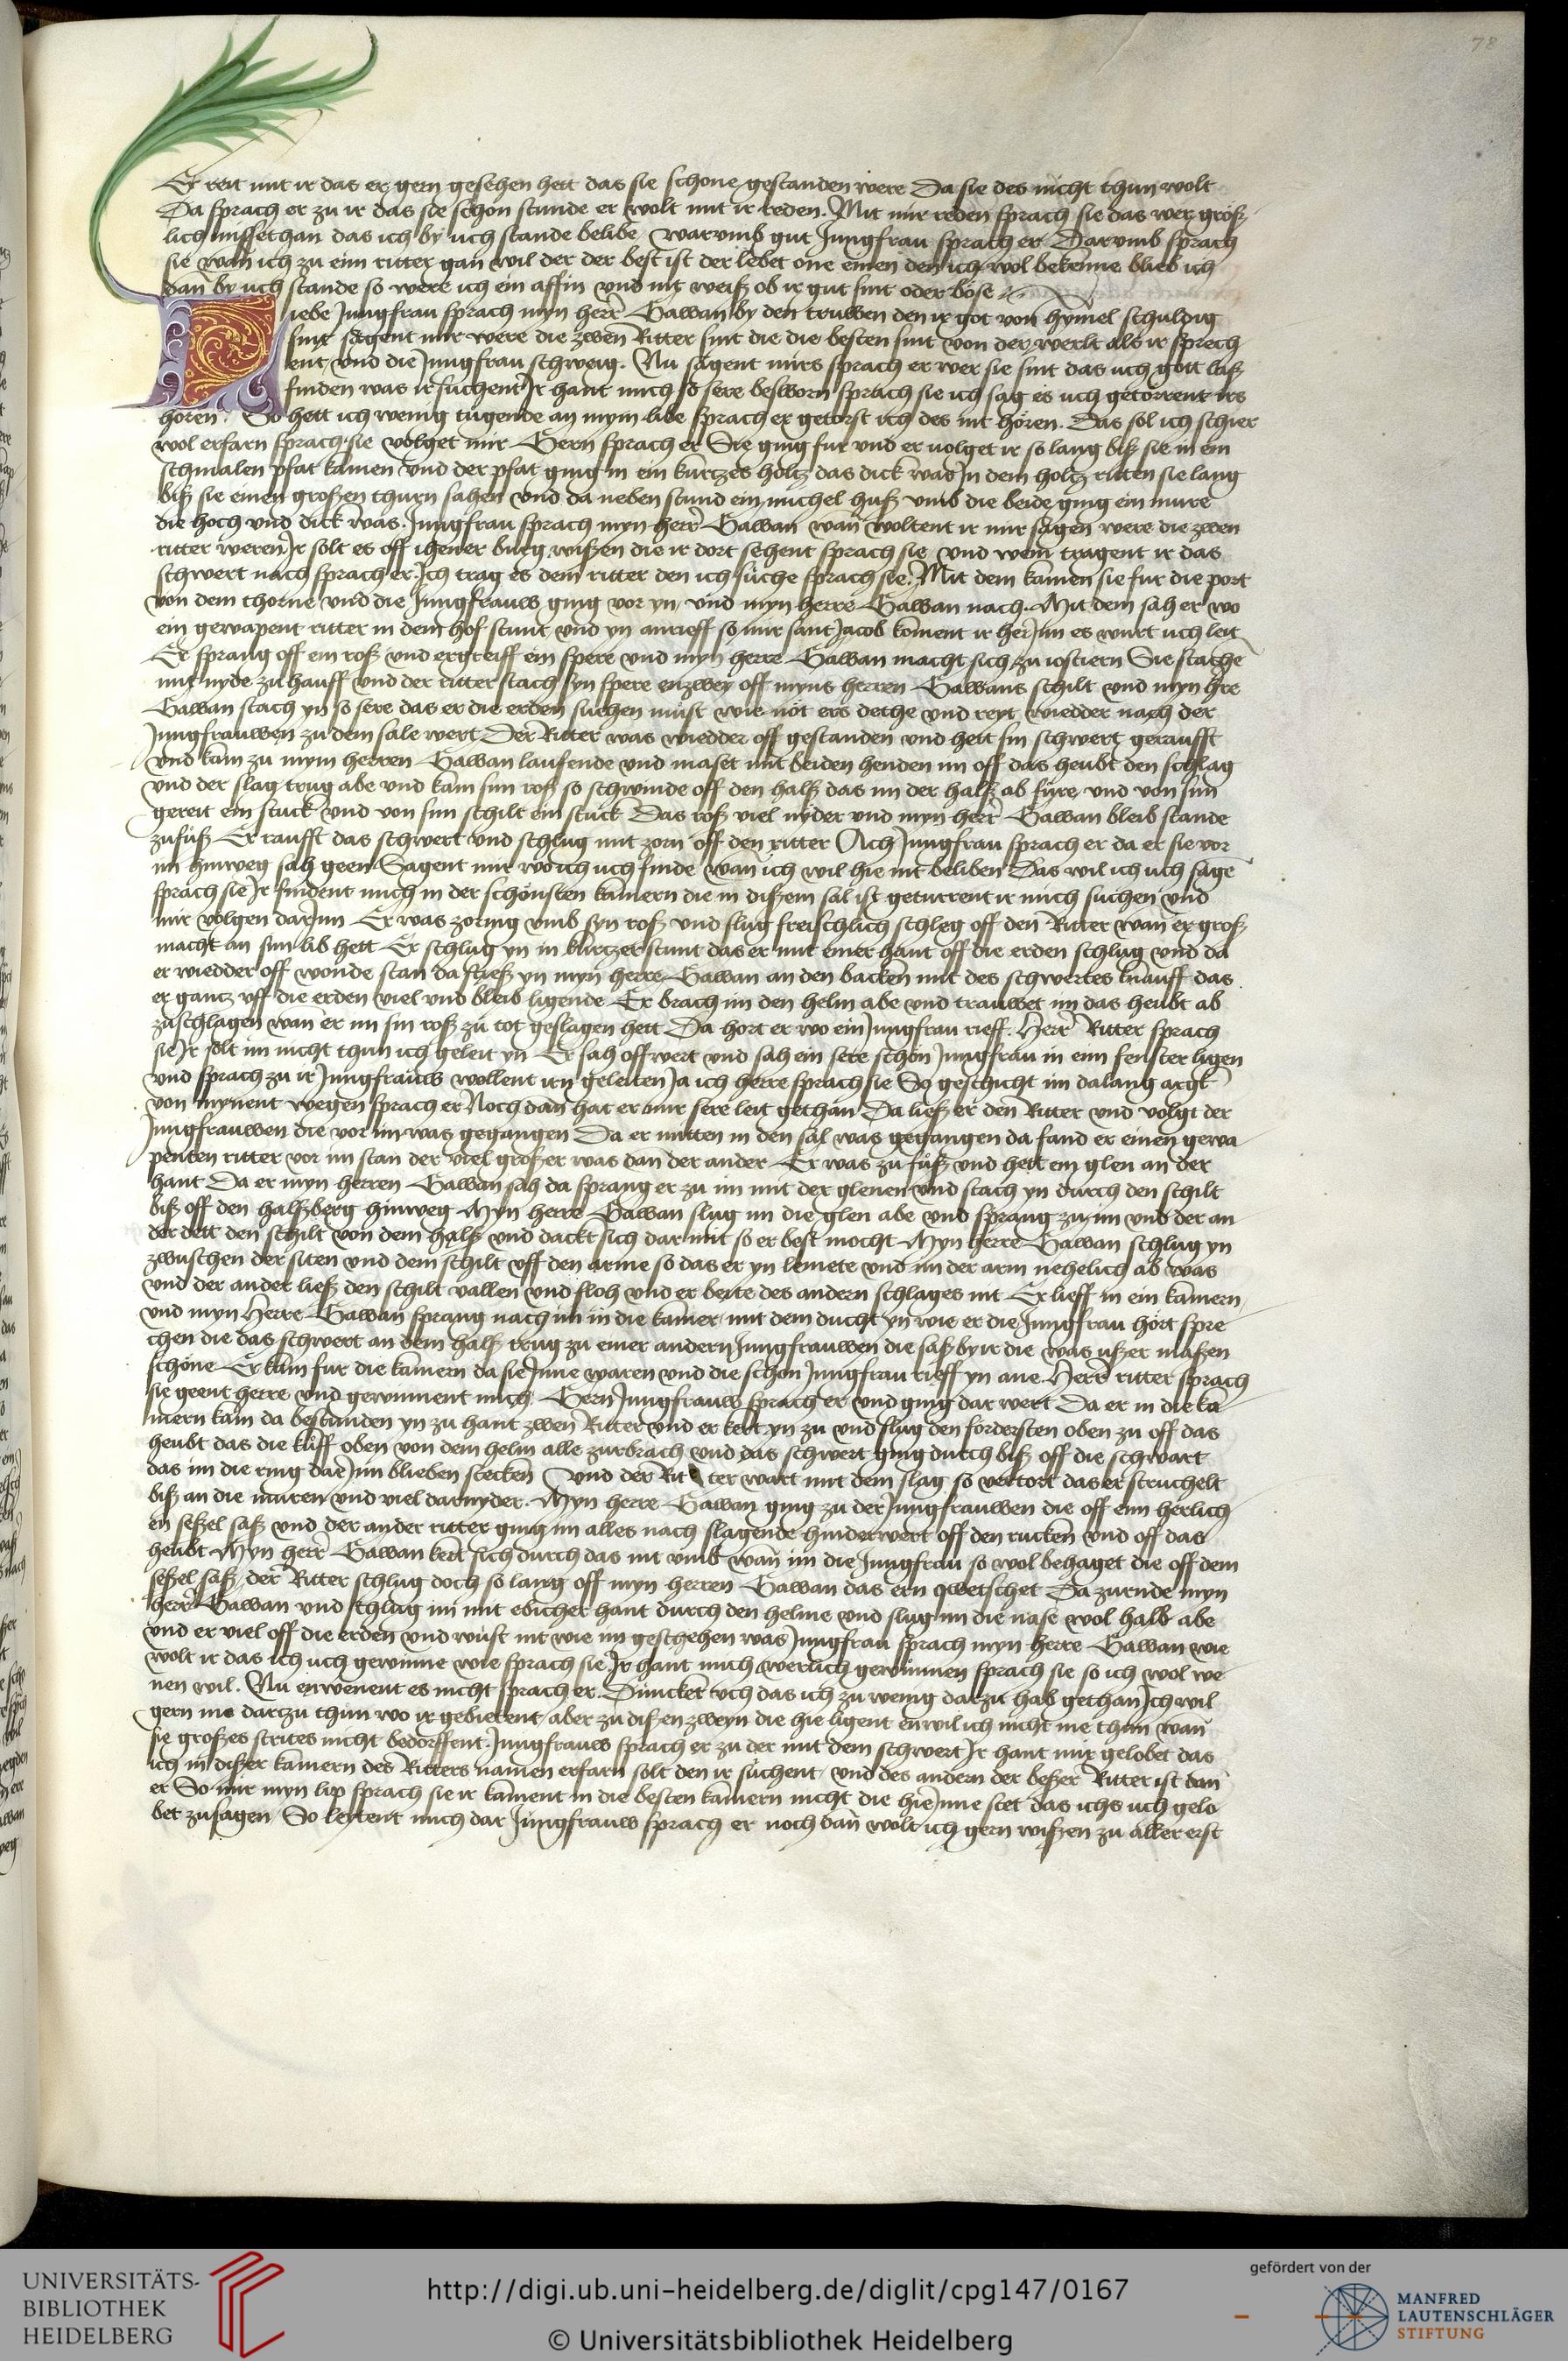 78
Er reit mit ir das er gern gesehen hett das sie schone gestanden were Da sie des nicht thun wolt
Da sprach er zu ir das sie schon stunde er wolt mit ir reden. Mit mir reden sprach sie das wer größ
lich missethan das ich by uch stande belibe / warumb gut Jungfrau sprach er Darumb sprach
sie wan ich zu eim ritter gan wil der der best ist der lebet one einen den ich wol bekenne blieb ich
dan by uch stande so were ich ein affin und nit weiß ob ir gut sint oder böse
Liebe Jungfrau sprach myn herr Gawan by den truwen den ir got von hymel schuldig
sint sagent mir were die zwen Ritter sint die die besten sint von der werlt als ir sprech
ent / und die Jungfrau schweig. Nu sagent mirs sprach er wer sie sint das uch gott laß
finden was ir suchent Ir hant mich so sere besworn sprach sie ich sag es uch getörrent irs
hören. So hett ich wenig tugende an mym libe sprach er getorst ich des nit hören. Das sol ich schier
wol erfarn sprach sie volget mir Gern sprach er Sie ging fur und er volget ir so lang biß sie in ein
schmalen pfat kamen Und der pfat ging in ein kurtzes holtz das dick was In dem holtz ritten sie lang
biß sie einen großen thurn sahen und da neben stund ein michel huß umb die beide ging ein mure
die hoch und dick was. Jungfrau sprach myn herr Gawan wan woltent ir mir sagen were die zwen
ritter weren Ir solt es off ihener burg wißen die ir dort sehent sprach sie und wem tragent ir das
schwert nach sprach er. Ich trag es dem ritter den ich suche sprach sie. Mit dem kamen sie fur die port
von dem thorne und die Jungfrauw ging vor yn und myn herre Gawan nach. Mit dem sah er wo
ein gewapent ritter in dem hof stunt und yn anrieff so mir sant Jacob koment ir her Inn es wurt uch leit
Er sprang off ein roß und ergreiff ein spere und myn herre Gawan macht sich zu iostiern Sie stache
mit nyde zu hauff und der ritter stach syn spere enzwey off myns herren Gawans schilt und myn hre
Gawan stach yn so sere das er die erden suchen must wie nöt ers dethe und reyt wiedder nach der
Jungfrauwen zu dem sale wert Der Ritter was wiedder off gestanden und hett sin schwert geraufft
und kam zu mym herren Gawan laufende und maset mit beiden henden im off das heubt den schlag
und der slag trug abe und kam sim roß so schwinde off den halß das im der halß ab fure und von sim
gereit ein stuck und von sim schilt ein stuck Das roß viel nyder und myn herr Gawan bleib stande
zufuß Er raufft das schwert und schlug mit zorn off den ritter Ach Jungfrau sprach er da er sie vor
im hinweg sah geen Sagent mir wo ich uch finde wan ich wil hie nit beliben Das wil ich uch sage
sprach sie Ir findent mich in der schönsten kamern die in dißem sal ist geturrent ir mich suchen und
mir volgen dar Inn Er was zornig umb syn roß und slug freischlich schleg off den Ritter wan er groß
macht an sim lib hett Er schlug yn in kurtzer stunt das er mit einer hant off die erden schlug und da
er wiedder off wonde stan da stieß yn myn herre Gawan an den backen mit des schwertes knauff das
er gantz uff die erden viel und bleib ligende Er brach im den helm abe und trauwet im das heubt ab
zuschlagen wan er im sin roß zu tot geslagen hett Da hort er wo ein Jungfrau rieff. Herr Ritter sprach
sie Ir solt im nicht thun ich geleit yn Er sah offwert und sah ein sere schön Jungfrau in eim fenster ligen
und sprach zu ir Jungfrauw wollent irn geleiten Ja ich herre sprach sie So geschicht im dalang argt
von mynent wegen sprach er Noch dan hat er mir sere leit gethan Da ließ er den Ritter und volgt der
Jungfrauwen die vor im was gegangen Da er mitten in den sal was gegangen da fand er einen gewa
penten ritter vor im stan der viel großer was dan der ander Er was zu fuß und hett ein glen an der
hant Da er myn herren Gawan sah da sprang er zu im mit der glenen und stach yn durch den schilt
biß off den halßberg hinweg Myn herre Gawan slug im die glen abe und sprang zu im und der an
der dett den schilt von dem halß und dackt sich dar mit so er best mocht Myn herre Gawan schlug yn
zwuschen der siten und dem schilt uff den arme so das er yn lemete und im der arm nehelich ab was
und der ander ließ den schilt vallen und floh und er beite des andern schlages nit Er lieff in ein kamern
und myn Herre Gawan sprang nach im in die kamer mit dem ducht yn wie er die Jungfrau hört spre
chen die das schwert an dem halß trug zu einer andern Jungfrauwen die saß by ir die was ußer maßen
schöne Er kam fur die kamern da sie Inne waren und die schon Jungfrau rieff yn ane Herr ritter sprach
sie geent herre und gewinnent mich. Gern Jungfrauw sprach er und ging dar wert Da er in die ka
mern kam da bestunden yn zu hant zwen Ritter und er kert yn zu und slug den fordersten oben zu off das
heubt das die kuff oben von dem helm alle zurbrach und das schwert ging durch biß off die schwart
das im die ring dar Inn blieben stecken Und der Rit ter wart mit dem slag so vertort das er struchelt
biß an die muren und viel darnyder. Myn herre Gawan ging zu der Jungfrauwen die off eim herlich
en seßel saß und der ander ritter ging im alles nach slagende hinderwert off den rucken und off das
heubt Myn herr Gawan kert sich durch das nit umb wan im die Jungfrau so wol behaget die off dem
seßel saß / der Ritter schlug doch so lang off myn herren Gawan das ern qwetschet Da zurnde myn
herr Gawan und schlug im mit ebicher hant durch den helme und slug im die nase wol halb abe
und er viel off die erden und wust nit wie im geschehen was Jungfrau sprach myn herre Gawan wie
wolt ir das ich uch gewinne wie sprach sie. Ir hant mich werlich gewunnen sprach sie so ich wol we
nen wil. Nu enwenent es nicht sprach er. Duncket uch das ich zu wenig darzu hab gethan Ich wil
gern me darczu thun wo ir gebietent / aber zu dißen zweyn die hie ligent en wil ich nicht me thun wan
sie großes strites nicht bedörffent. Jungfrauw sprach er zu der mit dem schwert Ir hant mir gelobet das
ich in dißer kamern des Ritters namen erfarn solt den ir suchent / und des andern der beßer Ritter ist dan
er So mir myn lip sprach sie ir kament in die besten kamern nicht die hie Inne stet das ichs uch gelo
bet zusagen So leytent mich dar Jungfrauw sprach er noch dan wolt ich gern wißen zu aller erst
UNIVERSITÄTS-
BIBLIOTHEK
HEIDELBERG
http://digi.ub.uni-heidelberg.de/diglit/cpg147/0167
© Universitätsbibliothek Heidelberg
gefördert von der
MANFRED
LAUTENSCHLÄGER
STIFTUNG